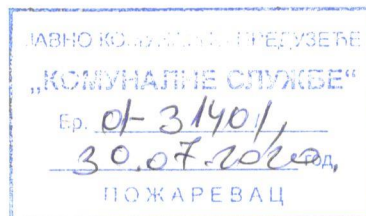 ЈАВНО КОМУНАЛНО ПРЕДУЗЕЋЕ
„КОМУНАЛНЕ СЛУЖБЕ“
Бр. 01-3140/1
30.07.2020 год.
ПОЖАРЕВАЦ